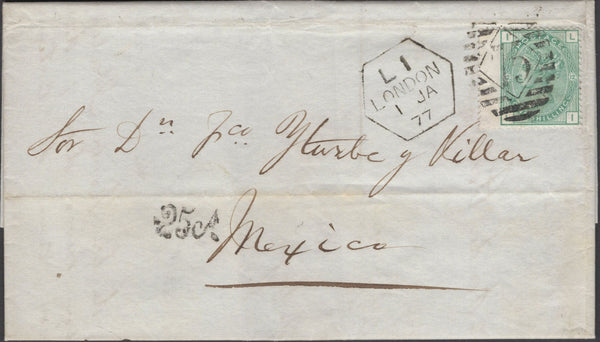 L 1
LONDON
1 JA
77
I L
SHILLING
L I
Sor Dn Fco Yturbe y Villar
25cs
Mexico